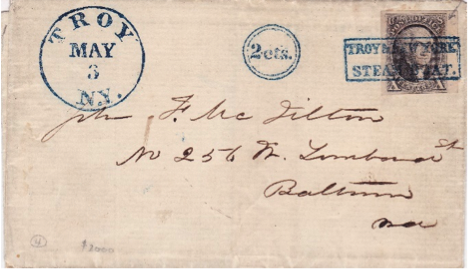 TROY
MAY
3
N.Y.
2cts.
POST OFFICE
TROY & NEW YORK
STEAM BOAT.
John F. McJilton
No 256 W. Lombard St
Baltimore
Md
4
$2000